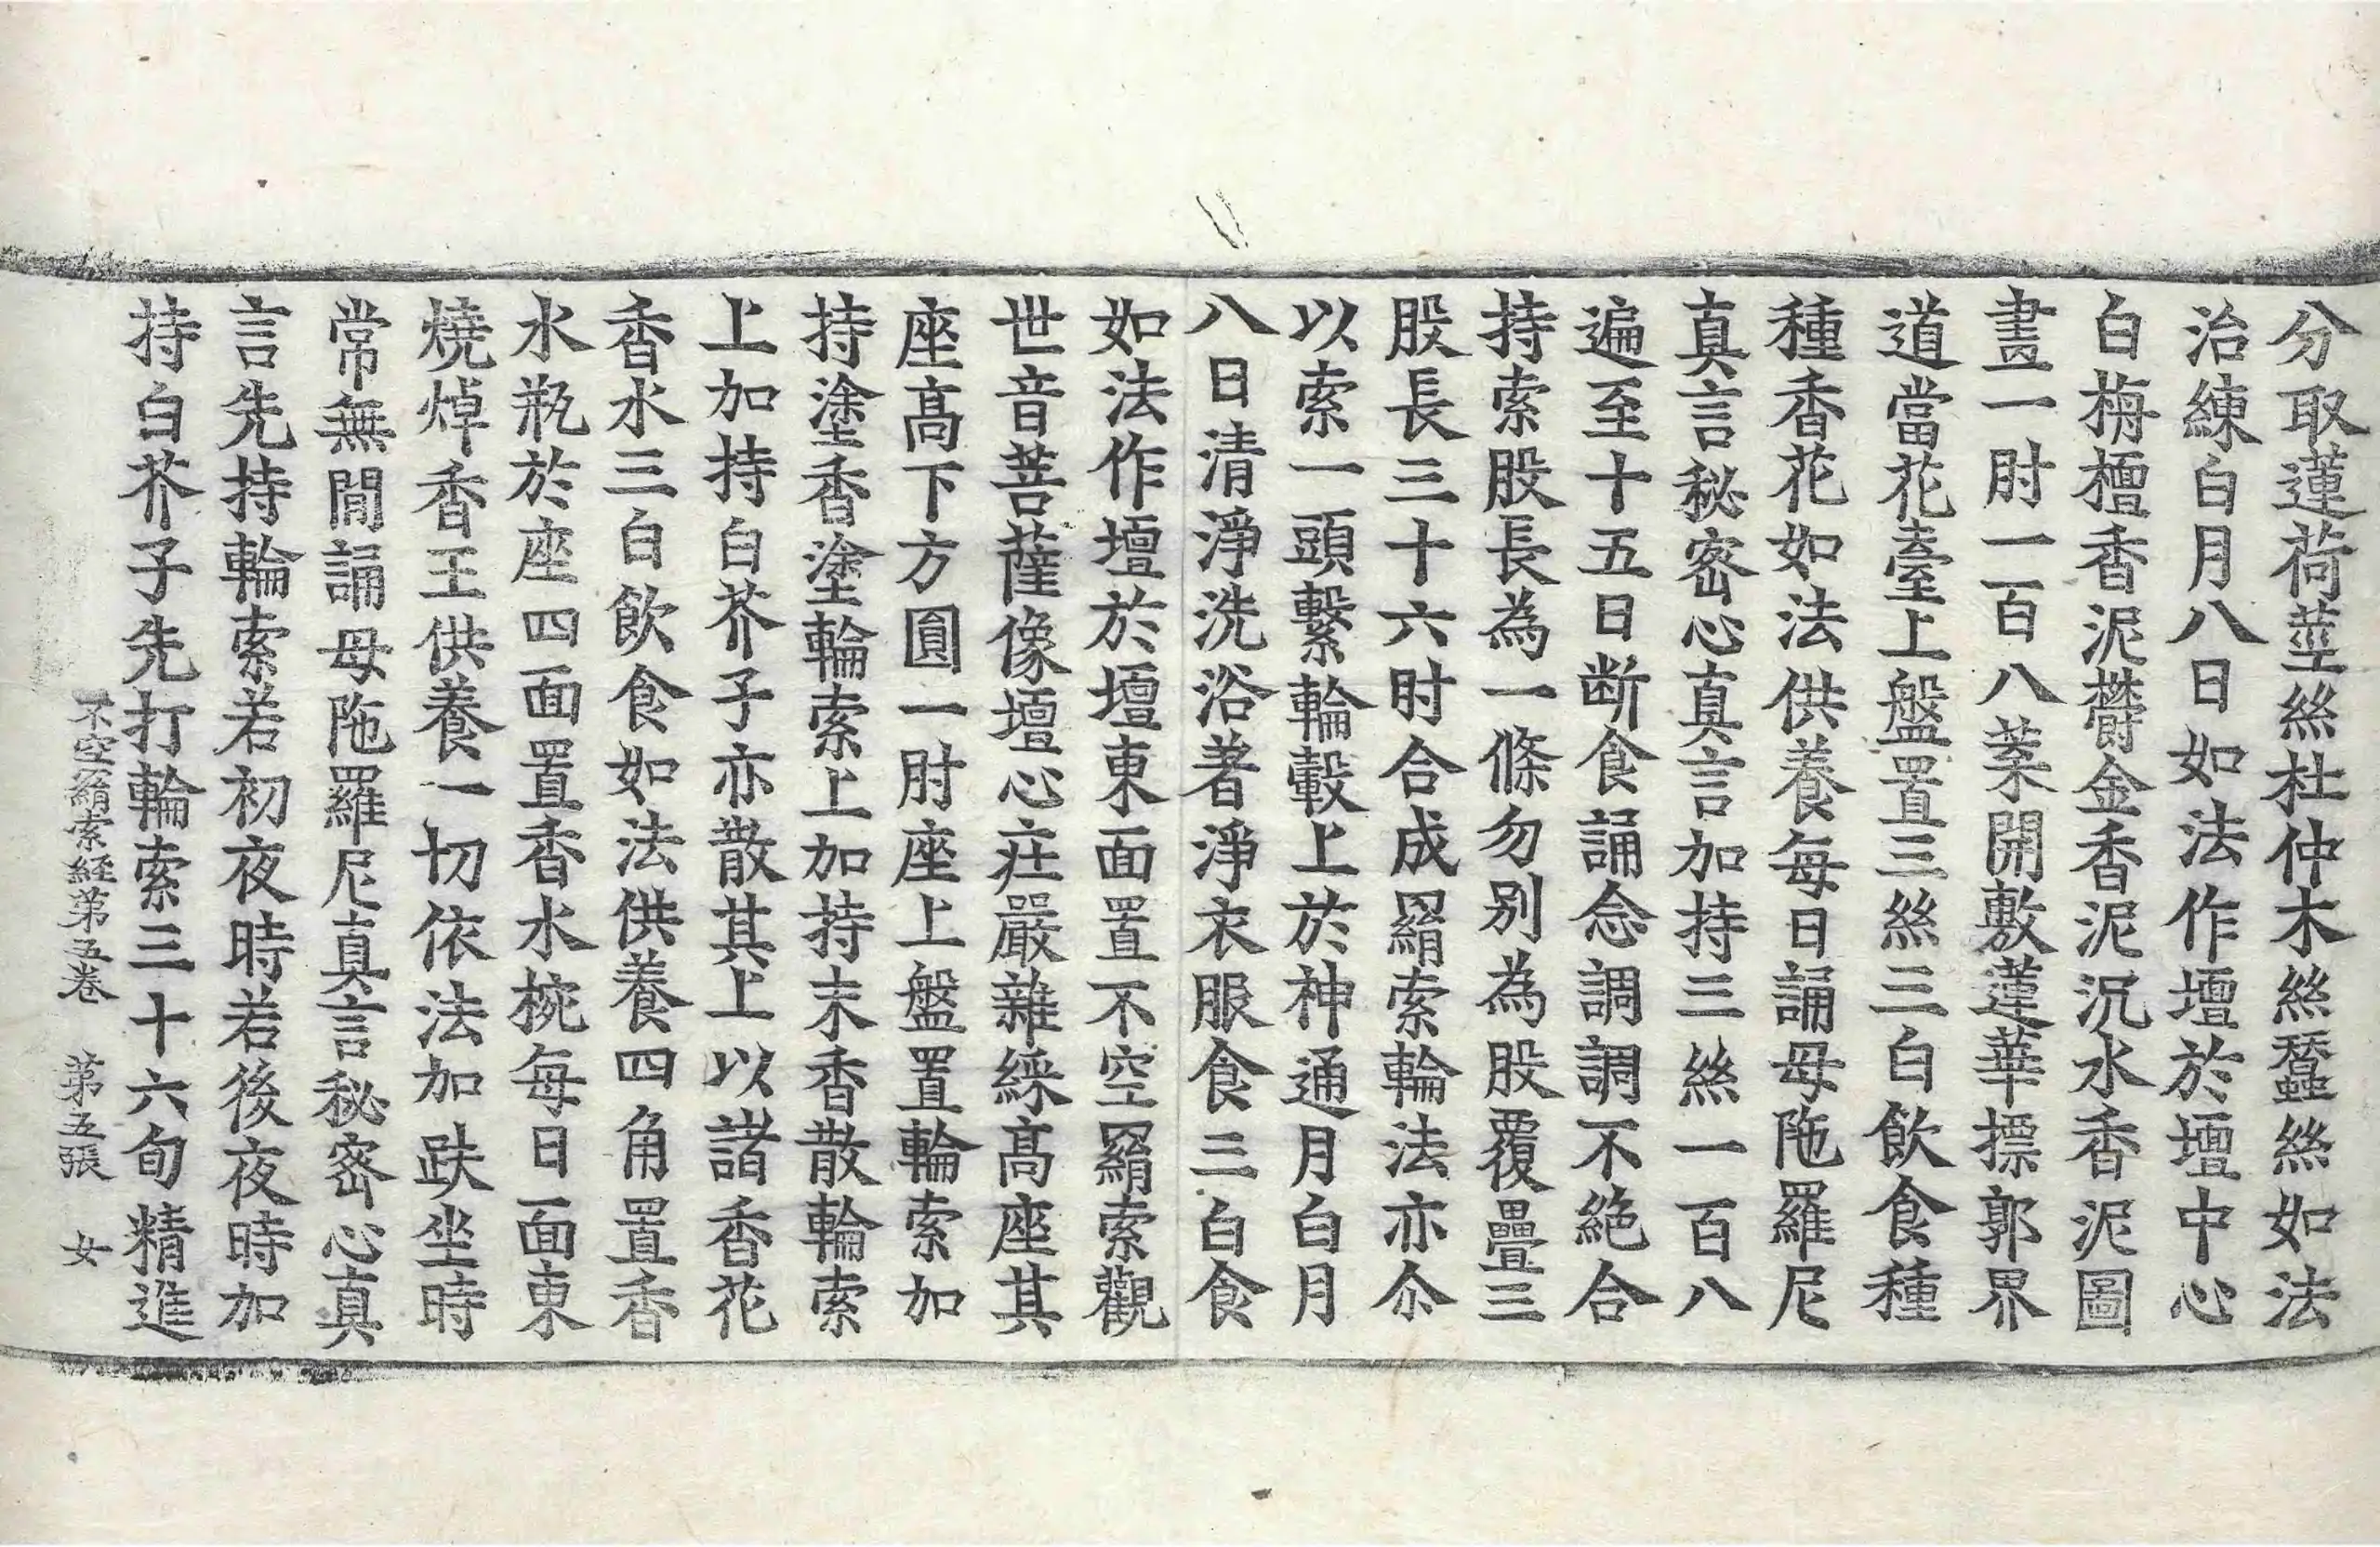 分取蓮荷莖絲杜仲木絲蠶絲如法
治練白月八日如法作壇於壇中心
白栴檀香泥欝金香泥沉水香泥圖
畫一肘一百八葉開敷蓮華摽郭界
道當花臺上盤置三絲三白飲食種
種香花如法供養每日誦母陁羅尼
真言秘密心真言加持三絲一百八
遍至十五日断食誦念調調不絕合
持索股長為一條勿別為股覆疊三
股長三十六肘合成羂索輪法亦尒
以索一頭繫輪轂上於神通月白月
八日清淨洗浴著淨衣服食三白食
如法作壇於壇東面置不空羂索觀
世音菩薩像壇心莊嚴雜綵髙座其
座髙下方圓一肘座上盤置輪索加
持塗香塗輪索上加持末香散輪索
上加持白芥子亦散其上以諸香花
香水三白飲食如法供養四角置香
水瓶於座四面置香水椀每日面東
燒焯香王供養一切依法加趺坐時
常無間誦母陁羅尼真言秘密心真
言先持輪索若初夜時若後夜時加
持白芥子先打輪索三十六旬精進
不空羂索経第五卷　第五張　女